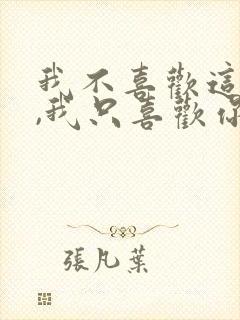 我不喜歡這
,我只喜歡你
張凡葉